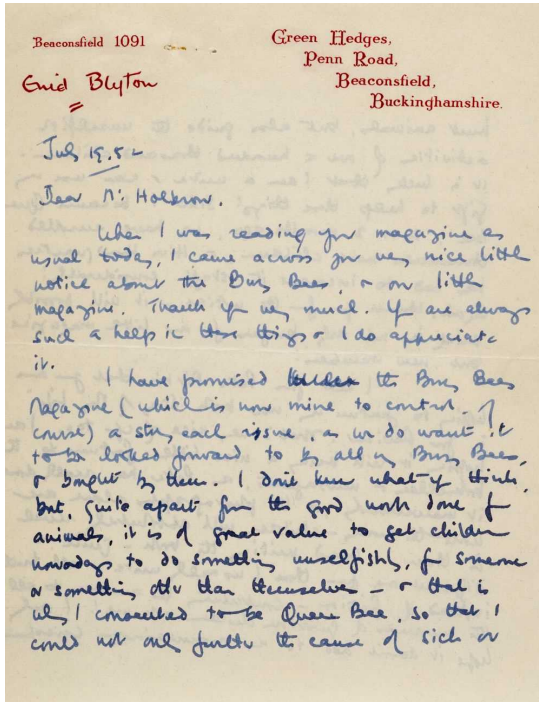 Beaconsfield 1091
Green Hedges,
Penn Road,
Beaconsfield,
Buckinghamshire.
Enid Blyton
July 19. 52
Dear Mr
When I was reading your magazine as
usual today, I came across your very nice little
notice about the Busy Bees, & our little
magazine. Thank you very much. You are always
such a help in these things & I do appreciate
it.
I have promised the Busy Bees
Magazine (which is now mine to control, of
course) a story each issue, as we do want it
to be looked forward to by all my Busy Bees,
& bought by them. I don't know what you think,
but, quite apart from the good work done for
animals, it is of great value to get children
nowadays to do something unselfishly, for someone
or something other than themselves – & that is
why I consented to be Queen Bee, so that I
could not only further the cause of sick or